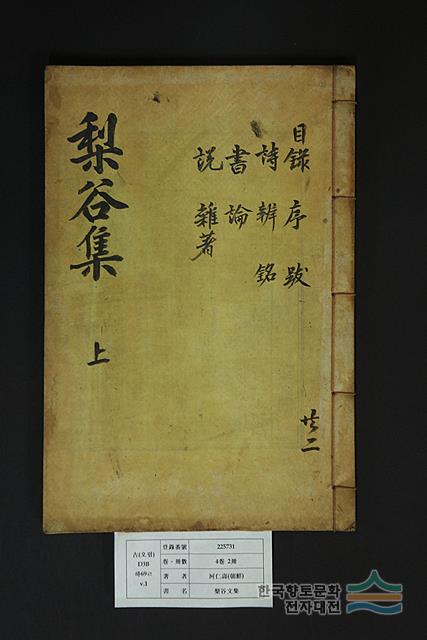 梨谷集
上
目錄 序 跋
詩 辨 銘
書 論
説 雜著
共二
古(오림)
D3B
하69ㄹ
v.1
登錄番號 225731
卷・冊數 4卷 2冊
著者 河仁壽(朝鮮)
書名 梨谷文集
한국향토문화
전자대전